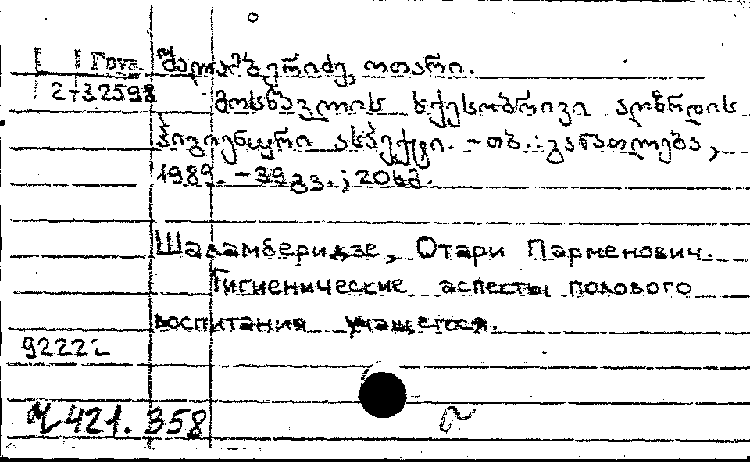 შალამბერიძე, ოთარი.
2-32598
მოსწავლის სქესობრივი აღზრდის
ჰიგიენური ასპექტი. - თბ.: განათლება,
1989. - 39 გვ.; 20 სმ.
Шаламберидзе, Отари Парменович.
Гигиенические аспекты полового
воспитания учащегося.
92222
421.358